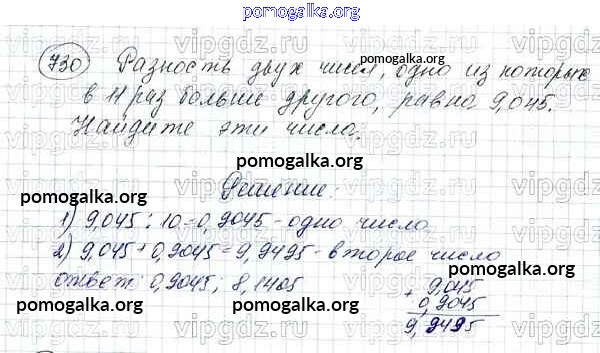 pomogalka.org
730 Разность двух чисел, одно из которых
в 11 раз больше другого, равна 9,045.
Найдите эти числа.
pomogalka.org
pomogalka.org
pomogalka.org
Решение:
pomogalka.org
1) 9,045 : 10 = 0,9045 - одно число
2) 9,045 + 0,9045 = 9,9495 - второе число
pomogalka.org
ответ: 0,9045; 8,1405
+ 9,045
0,9045
9,9495
pomogalka.org
pomogalka.org
pomogalka.org
vipgdz.ru